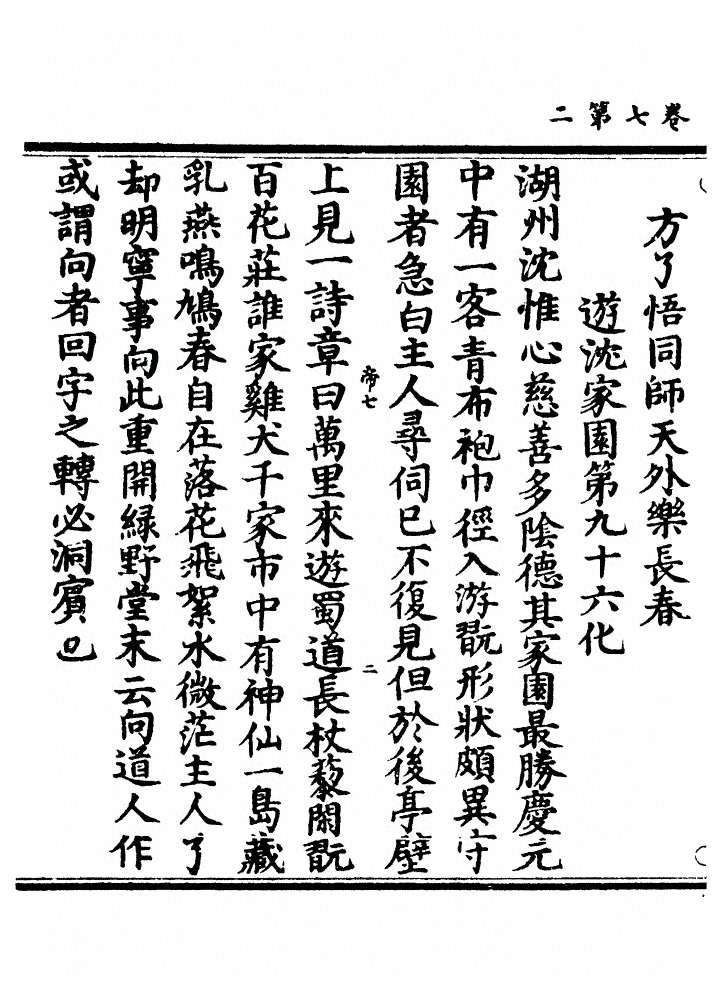 卷七第二
方了悟同師天外樂長春
遊沈家園第九十六化
湖州沈惟心慈善多陰德其家園最勝慶元
中有一客青布袍巾徑入游翫形狀頗異守
園者急白主人尋伺已不復見但於後亭壁
上見一詩章曰萬里來遊蜀道長杖藜閑翫
帝七
二
百花莊誰家雞犬千家市中有神仙一島藏
乳燕鳴鳩春自在落花飛絮水微茫主人了
却明寧事向此重開緑野堂末云向道人作
或謂向者回字之轉必洞賓也